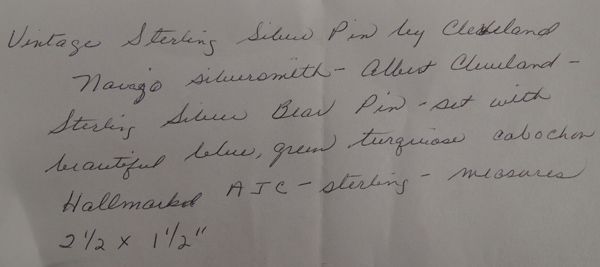 Vintage Sterling Silver Pin by Cleveland
Navajo silversmith - Albert Cleveland -
Sterling Silver Bear Pin - set with
beautiful blue, green turquoise cabochon
Hallmarked AJC - sterling - measures
2 1/2 x 1 1/2"